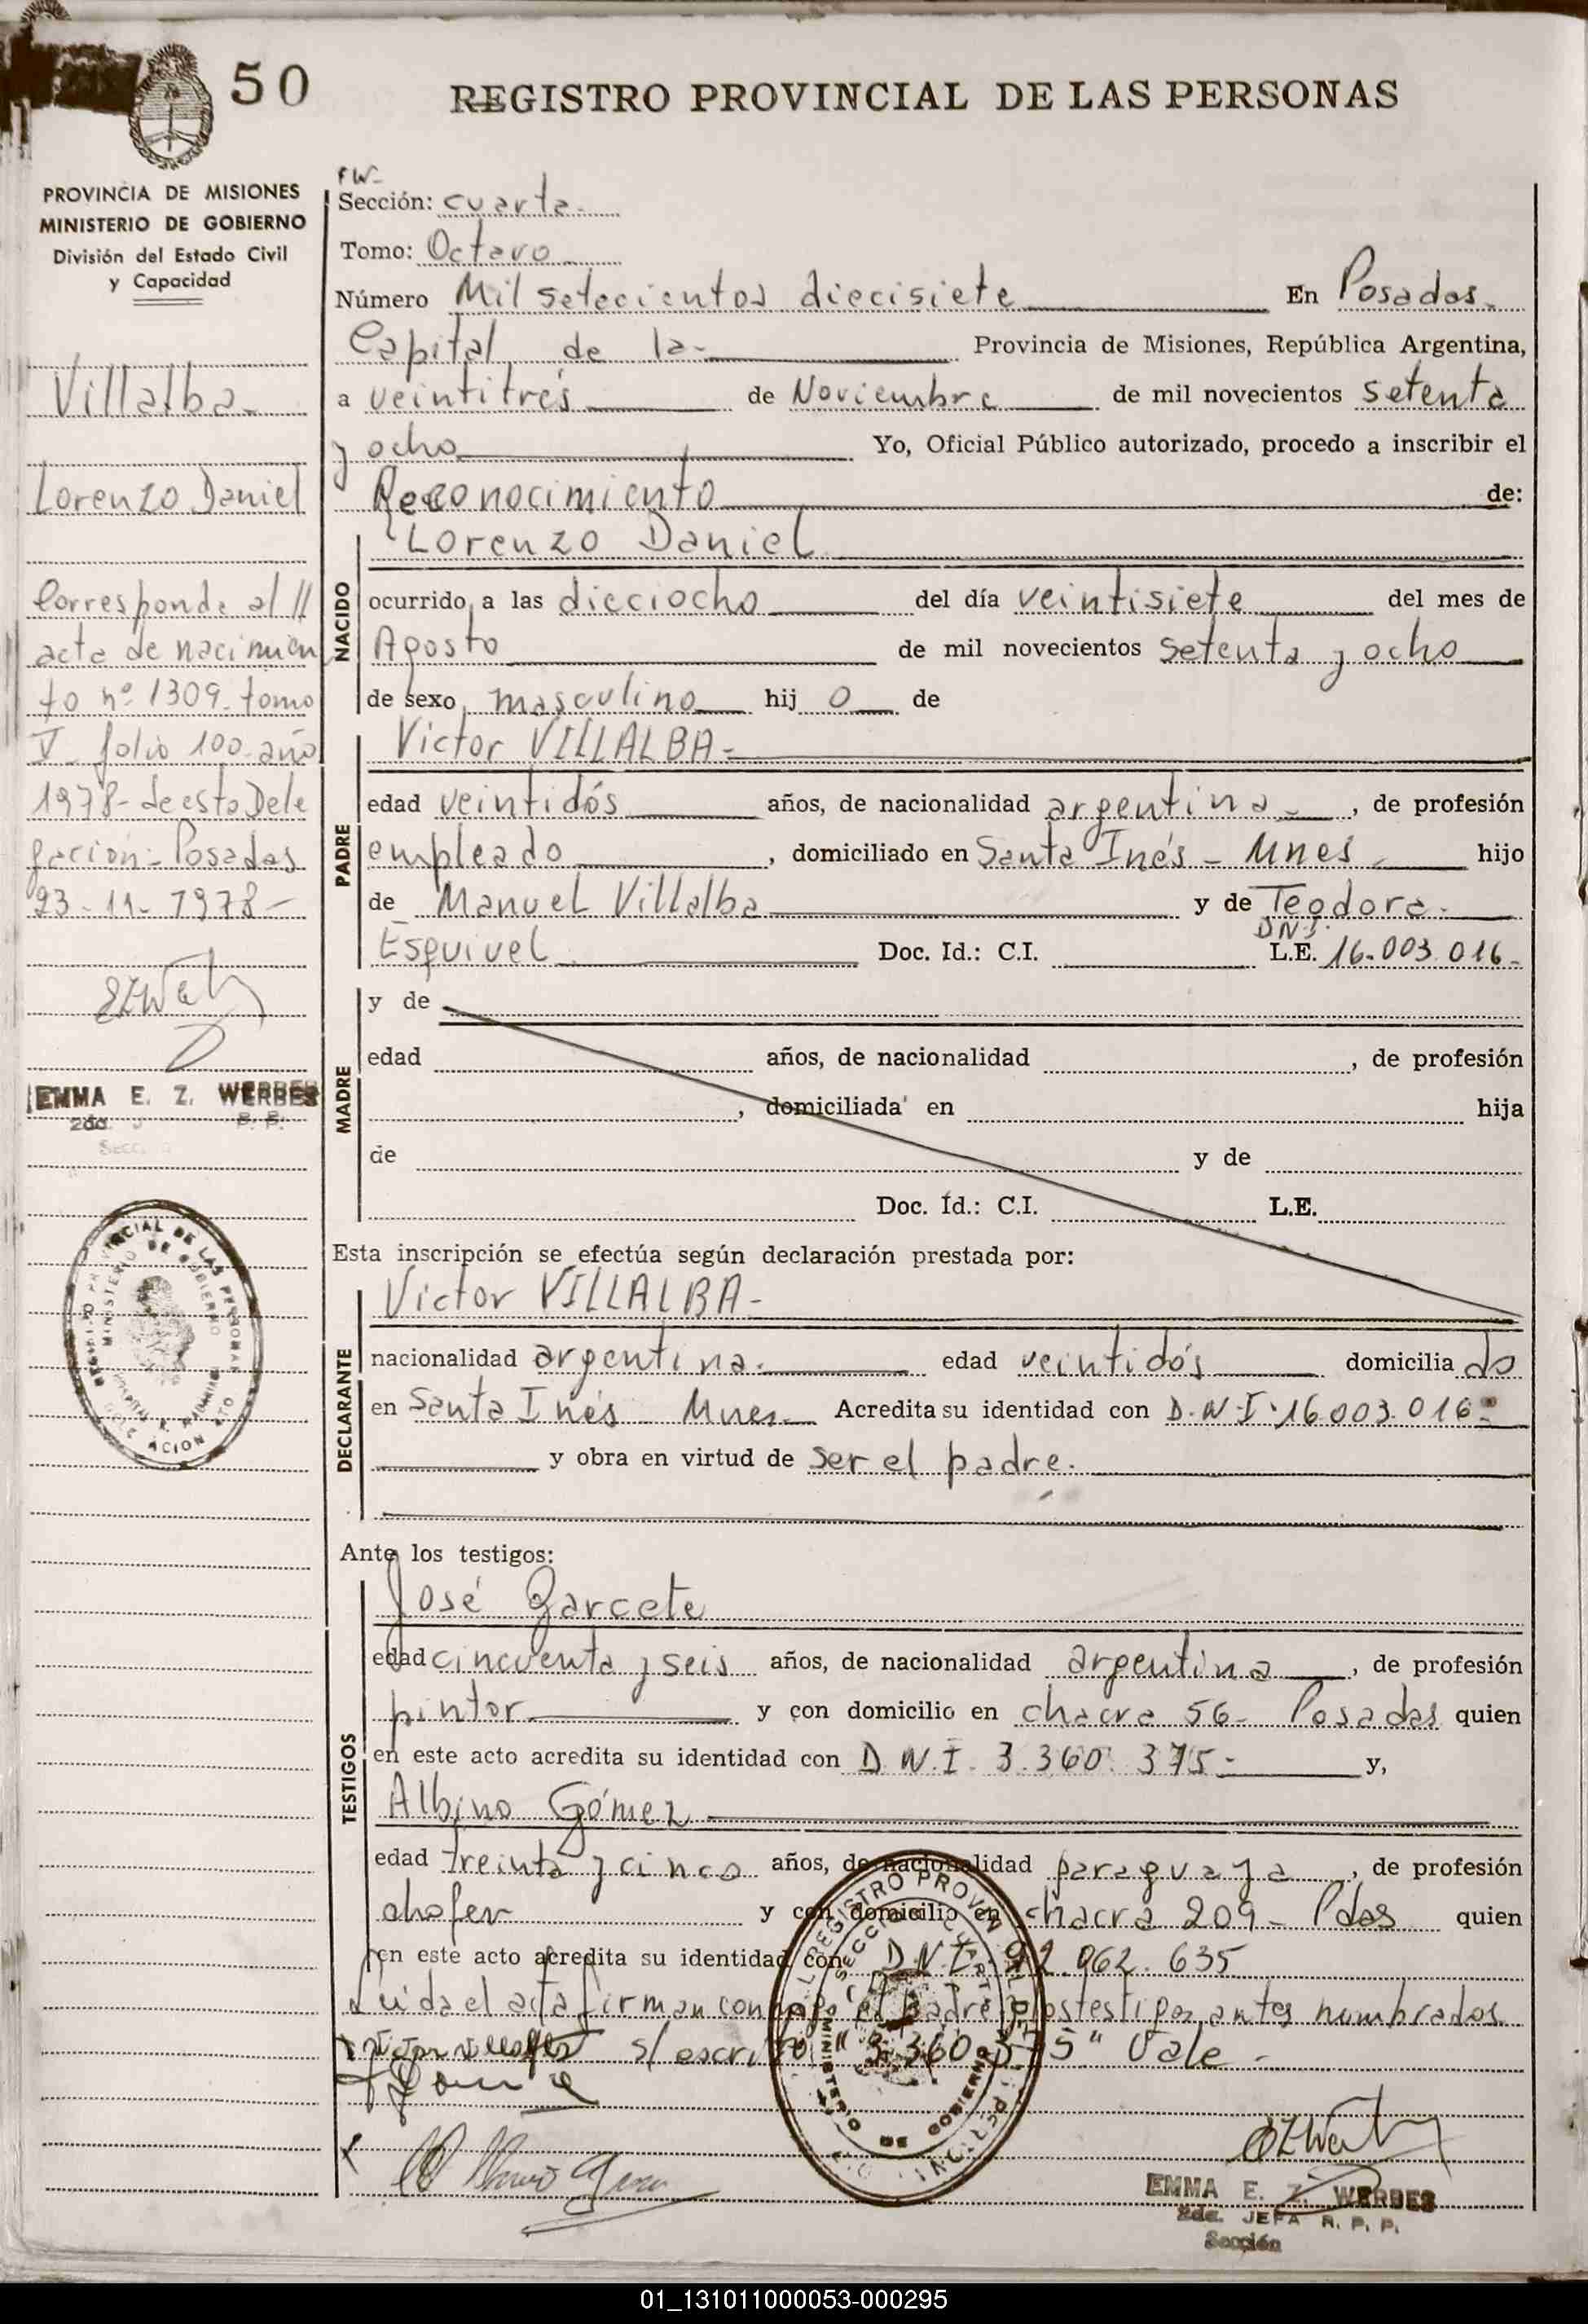 50
REGISTRO PROVINCIAL DE LAS PERSONAS
PROVINCIA DE MISIONES
MINISTERIO DE GOBIERNO
División del Estado Civil
y Capacidad
Villalba
Lorenzo Daniel
Corresponde al //
acta de nacimien
to nº 1309. tomo
V folio 100 año
1978- de esta Dele
gación - Posadas
23-11-1978-
EMMA E. Z. WERBES
2da.
Sección: cuarta.
Tomo: Octavo
Número Mil setecientos diecisiete En Posadas.
Capital de la Provincia de Misiones, República Argentina,
a veintitrés de Noviembre de mil novecientos setenta
y ocho Yo, Oficial Público autorizado, procedo a inscribir el
Reconocimiento de:
Lorenzo Daniel
NACIDO
ocurrido a las dieciocho del día veintisiete del mes de
Agosto de mil novecientos setenta y ocho
de sexo masculino hij o de
Victor VILLALBA-
PADRE
edad veintidós años, de nacionalidad argentina, de profesión
empleado, domiciliado en Santa Inés - Mnes hijo
de Manuel Villalba y de Teodora
DNI.
Esquivel Doc. Id.: C.I. L.E. 16.003.016-
MADRE
y de
edad años, de nacionalidad , de profesión
, domiciliada en hija
de y de
Doc. Id.: C.I. L.E.
Esta inscripción se efectúa según declaración prestada por:
Victor VILLALBA-
DECLARANTE
nacionalidad argentina. edad veintidós domicilia do
en Santa Inés - Mnes. Acredita su identidad con D.N.I. 16.003.016-
y obra en virtud de ser el padre.
Ante los testigos:
TESTIGOS
José Garcete
edad cincuenta y seis años, de nacionalidad argentina, de profesión
pintor y con domicilio en chacra 56- Posadas quien
en este acto acredita su identidad con D.N.I. 3.360.375- y,
Albino Gómez
edad treinta y cinco años, de nacionalidad paraguaya, de profesión
chofer y con domicilio en chacra 209- Pdas quien
en este acto acredita su identidad con D.N.I. 92.062.635
Leida el acta firman conmigo el padre y los testigos antes nombrados
s/ escrito "3.360.375" Vale -
EMMA E. Z. WERBES
2da. JEFA R. P. P.
Sección
01_131011000053-000295